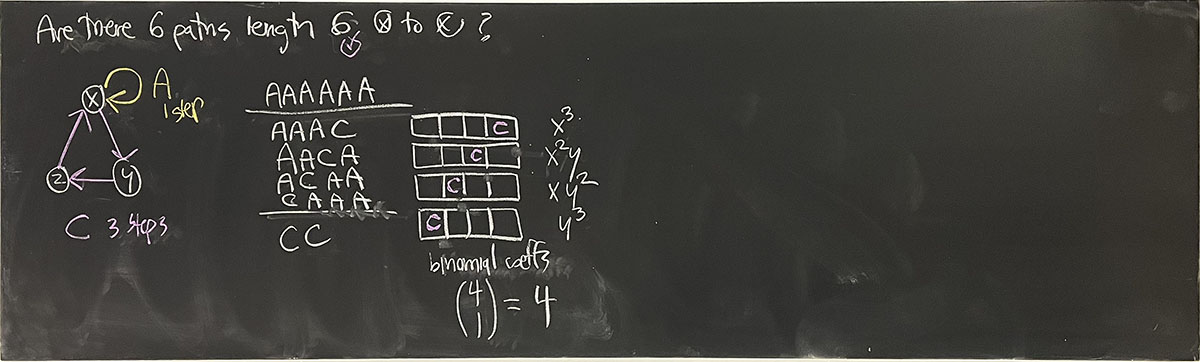 Are there 6 paths length 6 ⓧ to ⓧ ?
x
A
1 step
z
y
C 3 steps
AAAAAA
AAAC
AACA
ACAA
CAAA
CC
C
C
C
C
x³
x²y
xy²
y³
binomial coeffs
(4 1) = 4